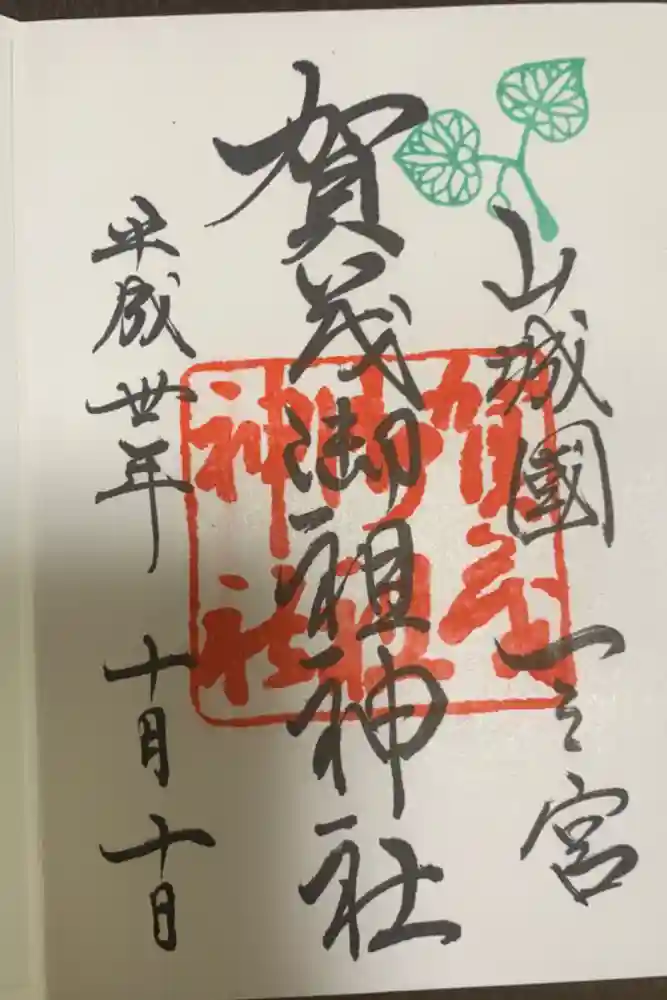 山城國一之宮
賀茂御祖神社
平成卅年十月十日
賀茂御祖神社